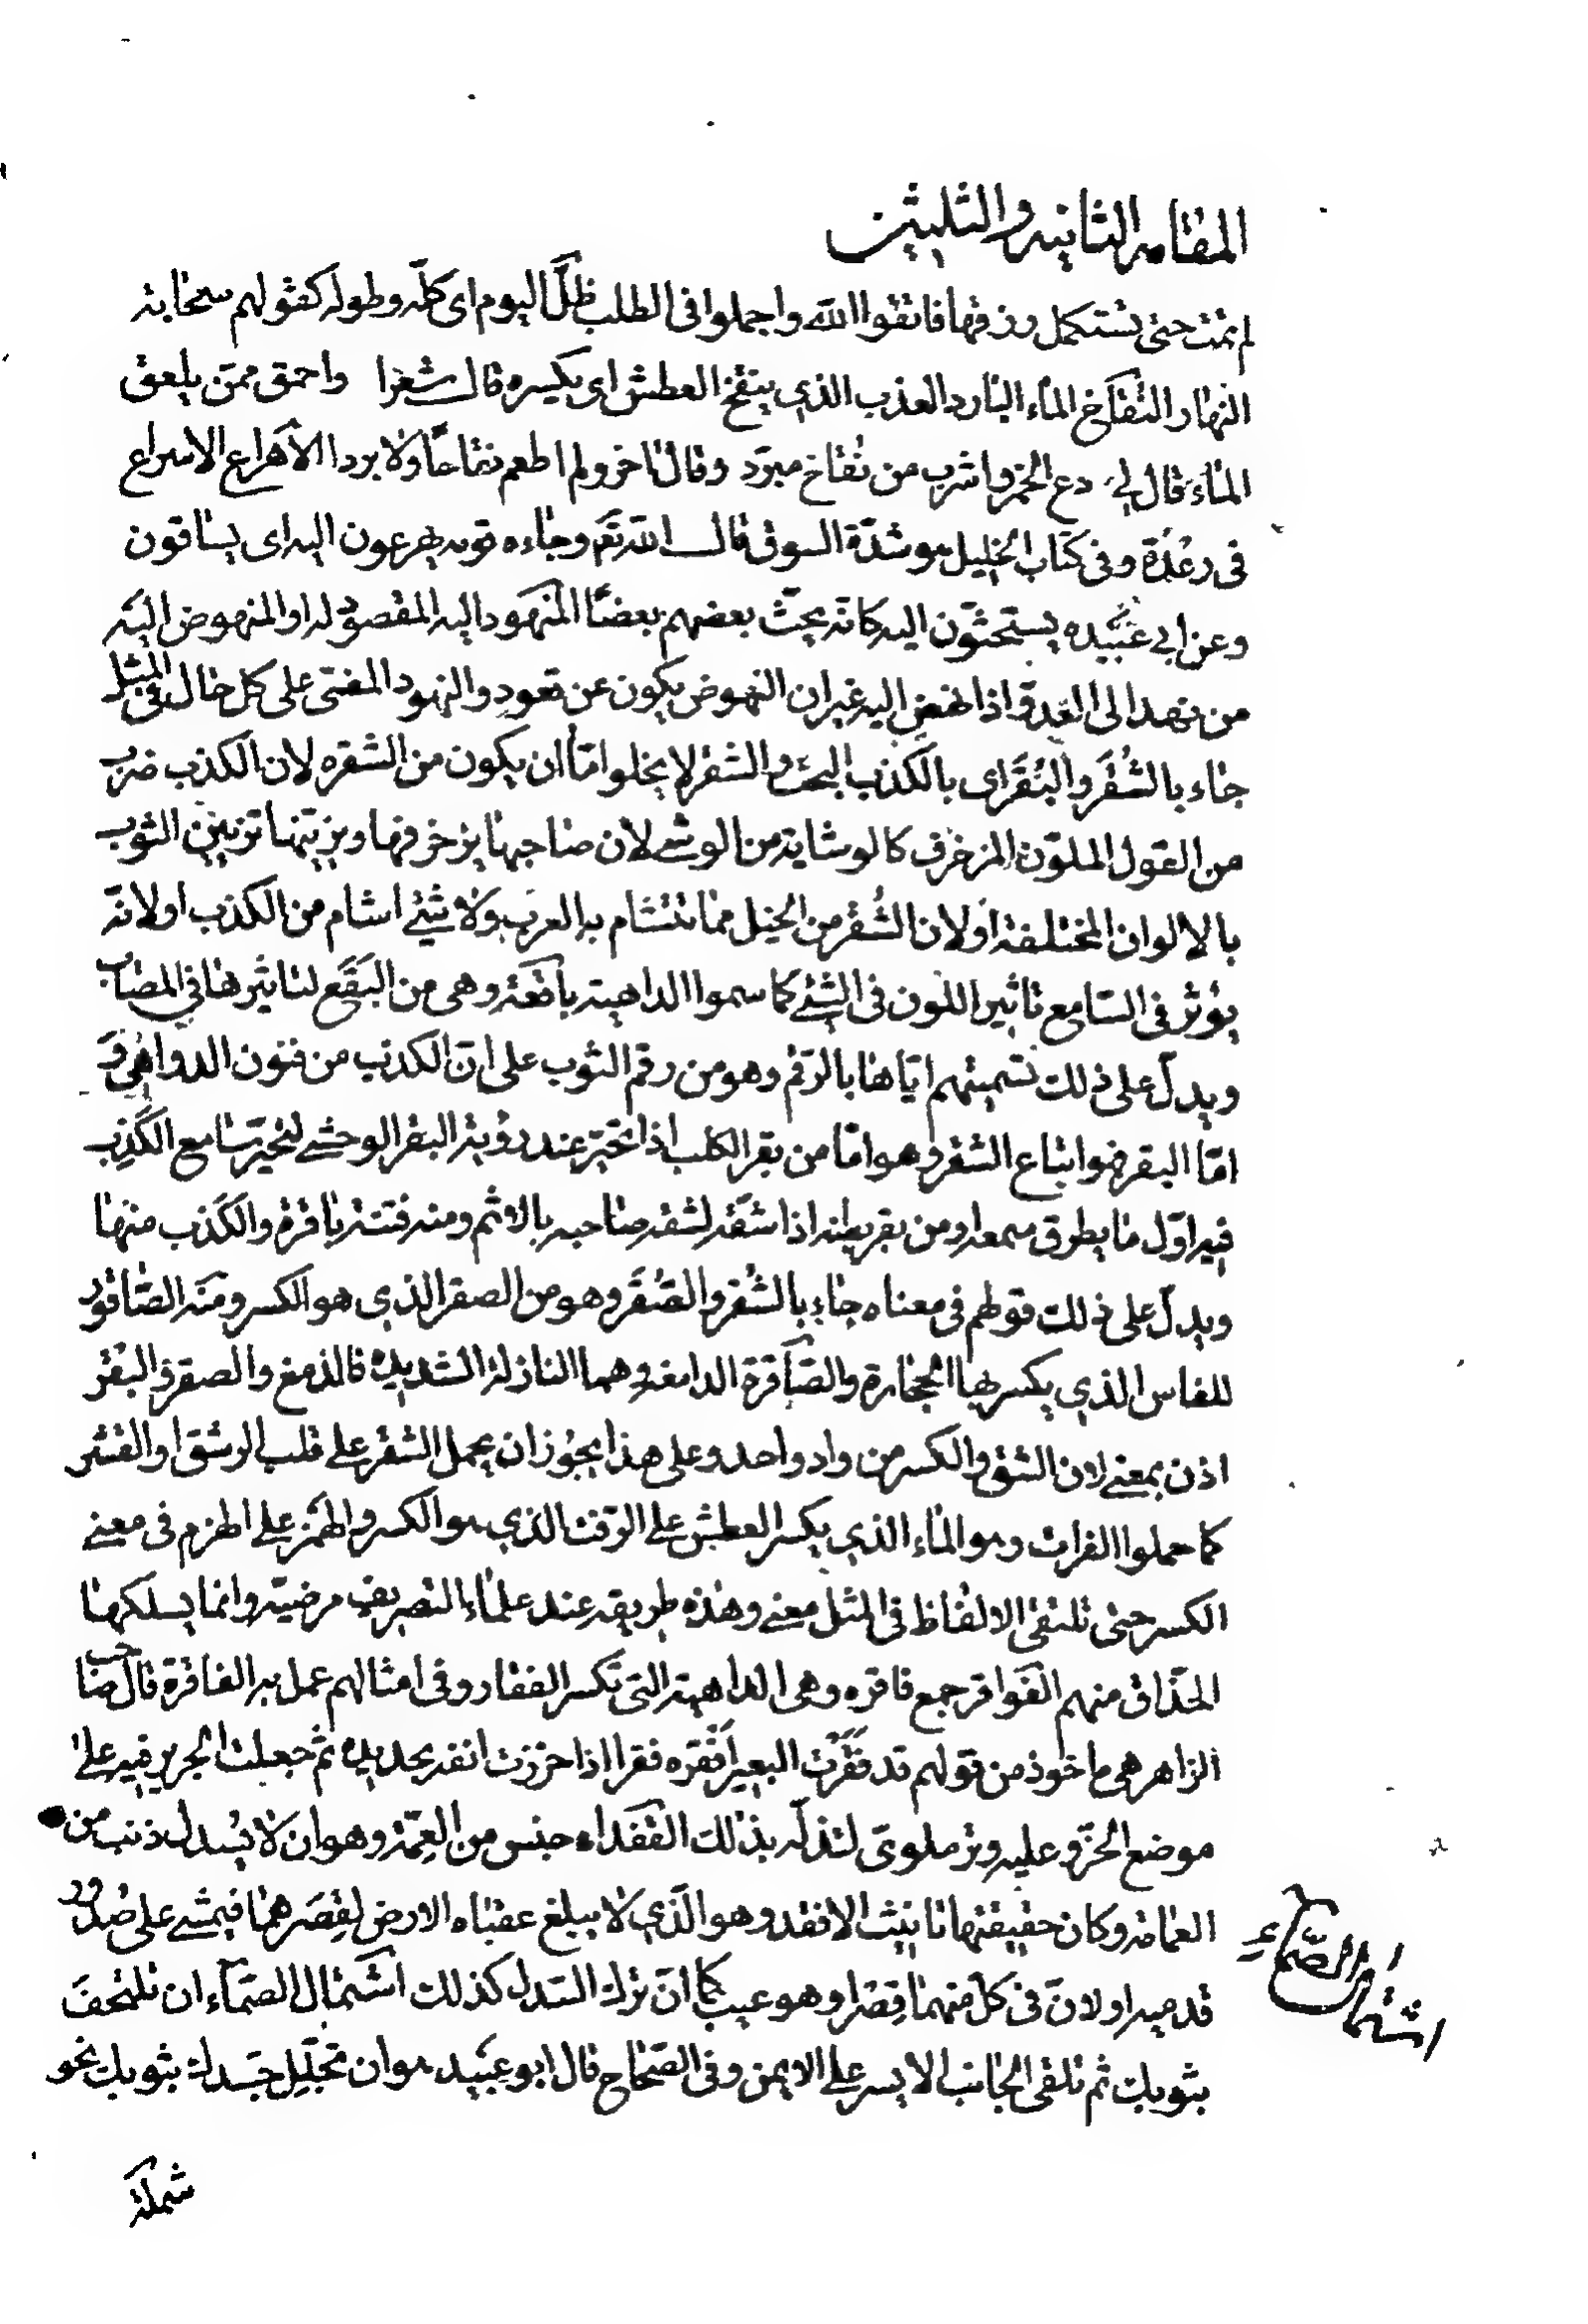 المقامه الثانيه والثلثين
لم تمت حتى تستكمل رزقها فاتقوا الله واجملوا فى الطلب ظلّ اليوم اى كلّه وطوله كقولهم سحابة
النهار النقاخ الماء البارد العذب الذي ينقخ العطش اى يكسره قال شعرا واحمق ممّن يلعق
الماء قال لي دع الخمر واشرب من نقاخ مبرد وقال اخر ولم اطعم نقاخا ولا بردا الاهراع الاسراع
فى رعدة وفى كتاب الخليل هو شدّة السوق قال الله تعم وجاءه قومه يهرعون اليه اى يساقون
وعن ابي عبيده يستحثون اليه كانه يحثّ بعضهم بعضا المنهود اليه المقصود له او المنهوض اليه
من نهد الى العدوّ اذا نهض اليه غير ان النهوض يكون عن قعود والنهود المضى على كل حال فى المثل
جاء بالشُقَر والبُقَر اى بالكذب البحت والشقر لا يخلوا امّا ان يكون من الشقره لان الكذب ضرب
من القول الملوّن المزخرف كالوشاية من الوشى لان صاحبها يزخرفها ويزيّنها تزيين الثوب
بالالوان المختلفة او لان الشُقْر من الخيل مما تتشام به العرب ولا شئ اشام من الكذب او لانه
يؤثر فى السامع تاثير اللون فى الشئ كما سموا الداهية باقعة وهى من البَقَع لتاثيرها فى المصاب
ويدلّ على ذلك تسميتهم ايّاها بالرقم وهو من رقم الثوب على انّ الكذب من فنون الدواهى و
امّا البقر فهو اتباع الشقر وهو امّا من بقر الكلب اذا تحيّر عند رؤية البقر الوحشى لتحيّر سامع الكذب
فيه اوّل ما يطرق سمعه او من بقر بطنه اذا شقّه لشقه صاحبه بالاثم ومنه فتنة باقرة والكذب منها
ويدلّ على ذلك قولهم فى معناه جاء بالشُقر والصُقَر وهو من الصقر الذي هو الكسر ومنه الصّاقور
للفاس الذي يكسر بها الحجارة والصّاقرة الدامغه وهما النازلة الشديده فالدمغ والصقر والبقر
اذن بمعنى لان الشق والكسر من واد واحد وعلى هذا يجوز ان يحمل الشقر على قلب الرشق او القشر
كما حملوا الفرات وهو الماء الذي يكسر العطش على الرفت الذي هو الكسر والهمز على الهزم فى معنى
الكسر حتى تلتقى الالفاظ فى المثل معنى وهذه طريقه عند علماء التصريف مرضية وانما يسلكها
الحذّاق منهم الفواقر جمع فاقره وهى الداهية التى تكسر الفقار وفى امثالهم عمل به الفاقرة قال صاحب
الزاهر هى ماخوذ من قولهم قد فَقَرْتُ البعير افقره فقرا اذا حززت انفه بحديده ثم جعلت الجرير فيه على
موضع الحزّ وعليه وتر ملوىّ لتذلّله بذلك القفداء جنس من العِمّة وهو ان لا يُسدل ذنب من
العمامة وكان حقيقتها تانيث الاقفد وهو الّذي لا يبلغ عقباه الارض لقصرهما فيمشى على صدور
قدميه او لانّ فى كل منهما قِصَرا وهو عيب كما انّ ترك السّدل كذلك اشتمال الصمّاء ان تلتحف
بثوبك ثم تلقى الجانب الايسر على الايمن وفى الصحاح قال ابو عبيد هو ان تجلّل جسدك بثوبك نحو
اشتمال الصّماء
شملة